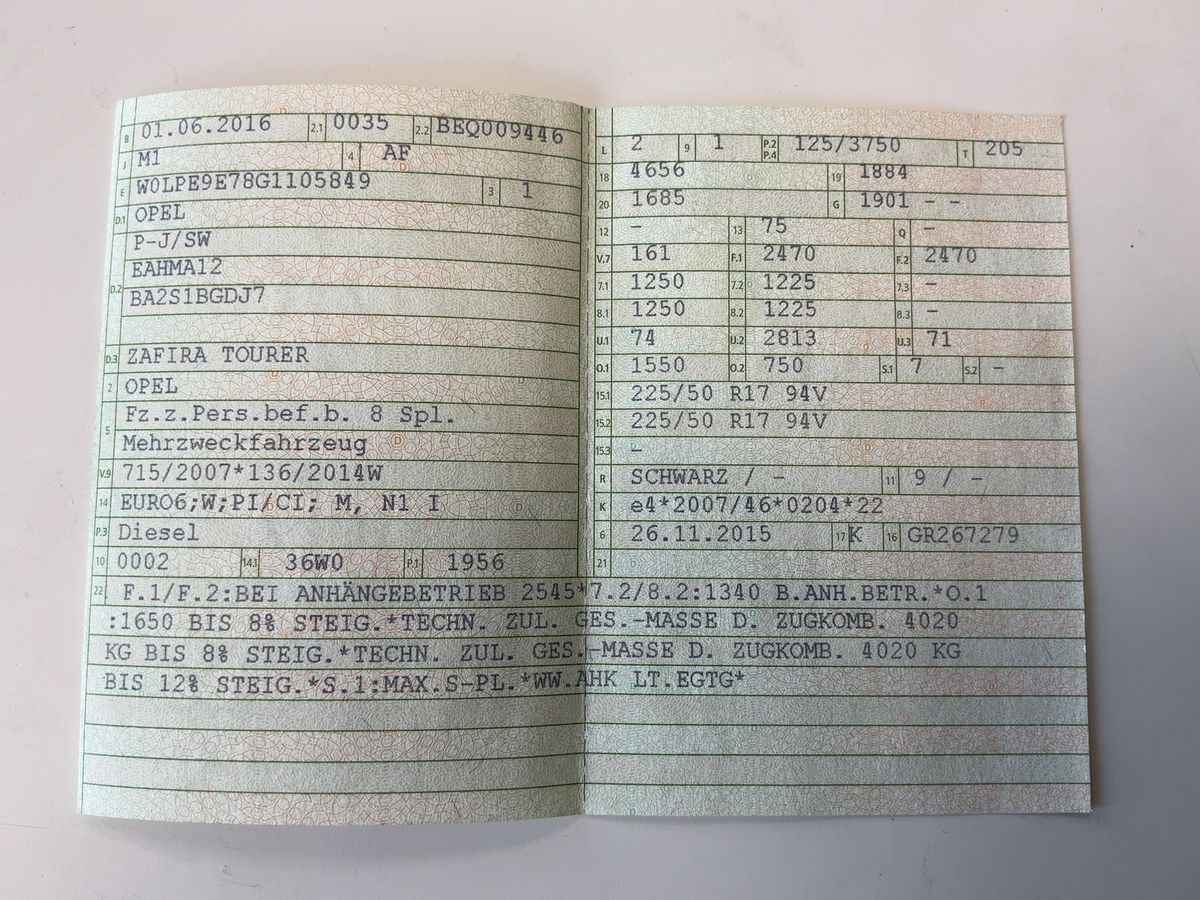 B 01.06.2016 2.1 0035 2.2 BEQ009446
J M1 4 AF
E W0LPE9E78G1105849 3 1
D.1 OPEL
P-J/SW
D.2 EAHMA12
BA2S1BGDJ7
D.3 ZAFIRA TOURER
2 OPEL
5 Fz.z.Pers.bef.b. 8 Spl.
Mehrzweckfahrzeug
V.9 715/2007*136/2014W
14 EURO6;W;PI/CI; M, N1 I
P.3 Diesel
10 0002 14.1 36W0 P.1 1956
L 2 9 1 P.2 P.4 125/3750 T 205
18 4656 19 1884
20 1685 G 1901 - -
12 - 13 75 Q -
V.7 161 F.1 2470 F.2 2470
7.1 1250 7.2 1225 7.3 -
8.1 1250 8.2 1225 8.3 -
U.1 74 U.2 2813 U.3 71
O.1 1550 O.2 750 S.1 7 S.2 -
15.1 225/50 R17 94V
15.2 225/50 R17 94V
15.3 -
R SCHWARZ / - 11 9 / -
K e4*2007/46*0204*22
6 26.11.2015 17 K 16 GR267279
21
22 F.1/F.2:BEI ANHÄNGEBETRIEB 2545*7.2/8.2:1340 B.ANH.BETR.*O.1
:1650 BIS 8% STEIG.*TECHN. ZUL. GES.-MASSE D. ZUGKOMB. 4020
KG BIS 8% STEIG.*TECHN. ZUL. GES.-MASSE D. ZUGKOMB. 4020 KG
BIS 12% STEIG.*S.1:MAX.S-PL.*WW.AHK LT.EGTG*